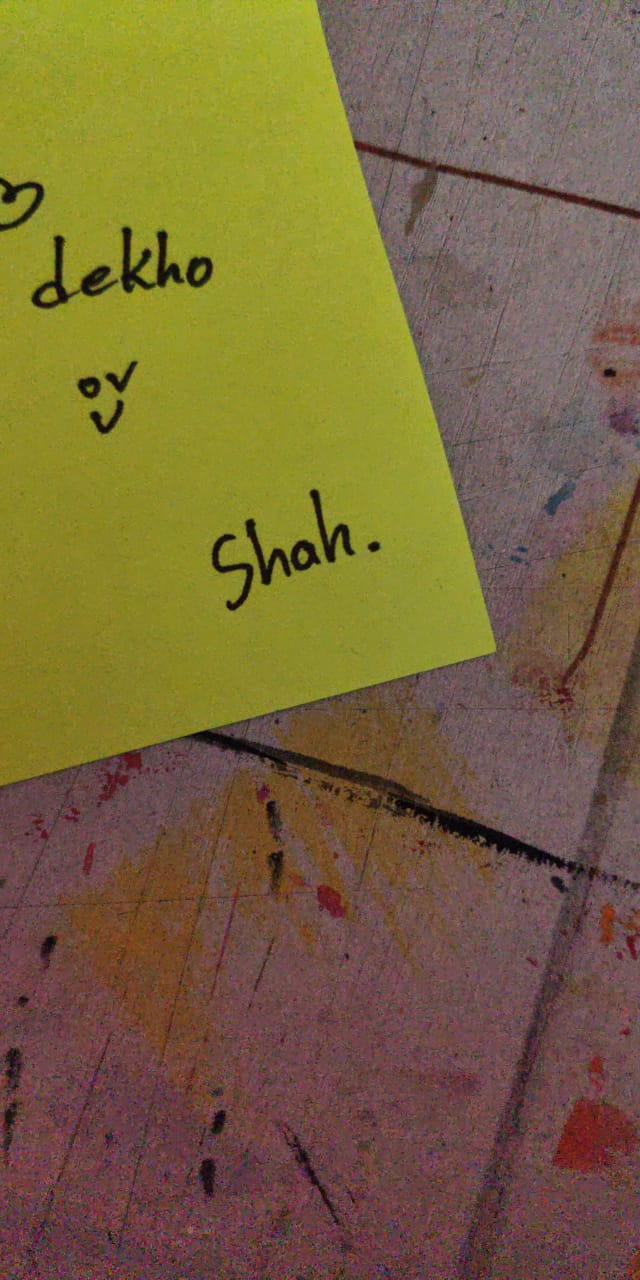 dekho
Shah.